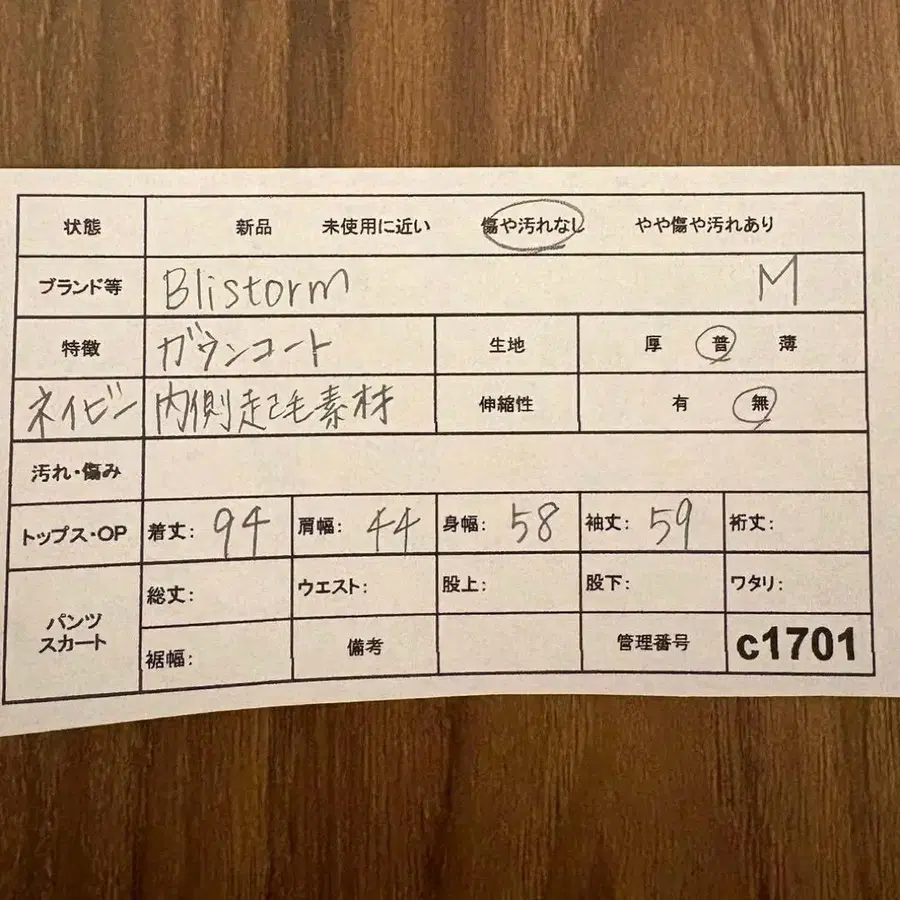 状態 新品 未使用に近い 傷や汚れなし やや傷や汚れあり
ブランド等 Blistorm M
特徴 ガウンコート 生地 厚 普 薄
ネイビー 内側起毛素材 伸縮性 有 無
汚れ・傷み
トップス・OP 着丈: 94 肩幅: 44 身幅: 58 袖丈: 59 裄丈:
パンツ スカート 総丈: ウエスト: 股上: 股下: ワタリ:
裾幅: 備考 管理番号 c1701